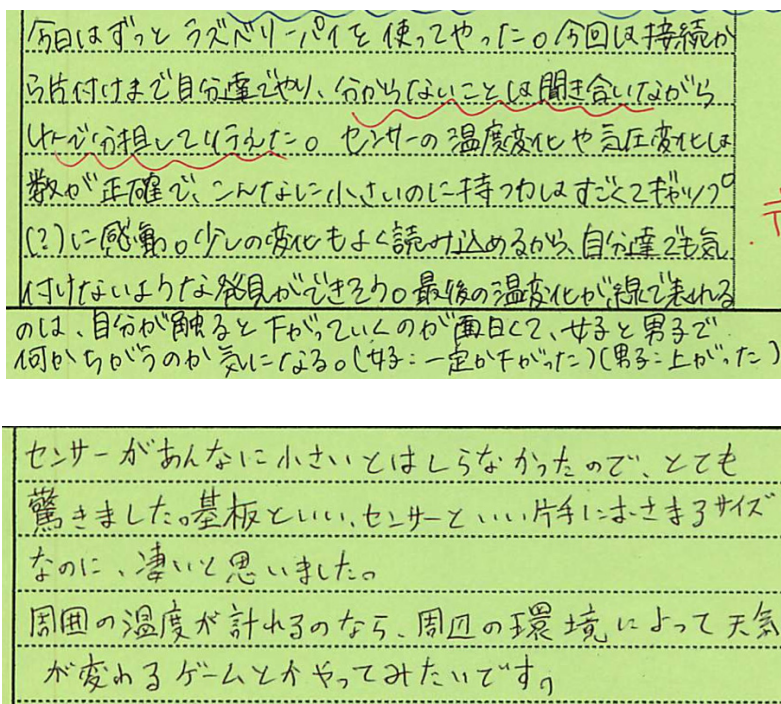 今日はずっとラズベリーパイを使ってやった。今回は接続か
ら片付けまで自分達でやり、分からないことは聞き合いながら
けんで分担して行えた。センサーの温度変化や気圧変化は
数が正確で、こんなに小さいのに持つ力はすごくてギャップ
(?)に感動。少しの変化もよく読み込めるから、自分達でも気
付けないような発見ができそう。最後の温変化が線で表れる
のは、自分が触ると下がっていくのが面白くて、女子と男子で
何がちがうのか気になる。(女子:一定か下がった)(男子:上がった)
センサーがあんなに小さいとはしらなかったので、とても
驚きました。基板といい、センサーといい片手におさまるサイズ
なのに、凄いと思いました。
周囲の温度が計れるのなら、周辺の環境によって天気
が変わるゲームとかやってみたいです。